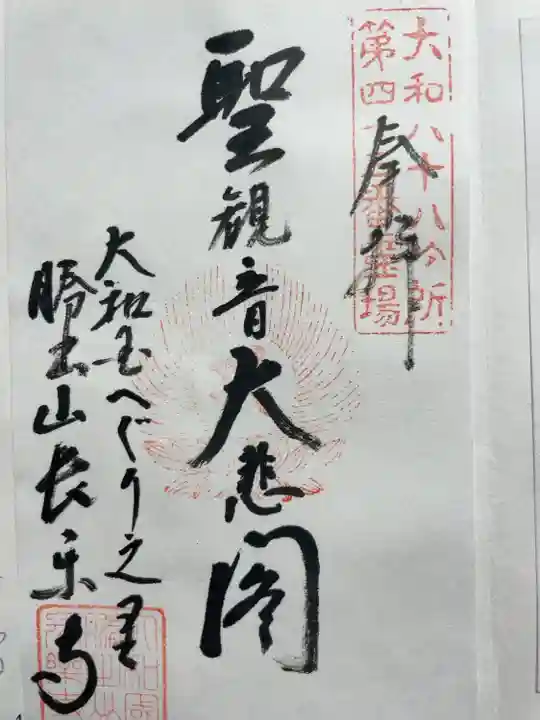 大和八十八ヶ所
第四十番霊場
奉拝
聖観音大悲閣
大和国へぐり之里
勝出山長楽寺